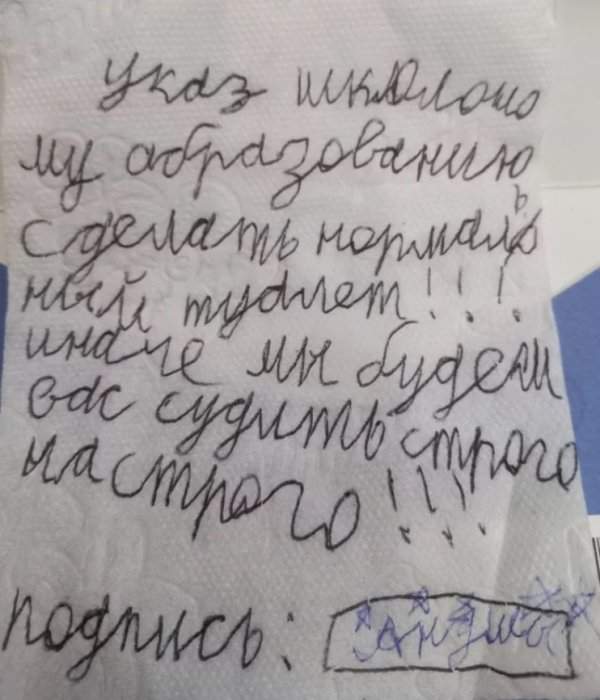 указ школоно
му абразованию
сделать нормаль
ный туалет!!!
иначе мы будем
вас судить строго
настрого!!!
подпись: